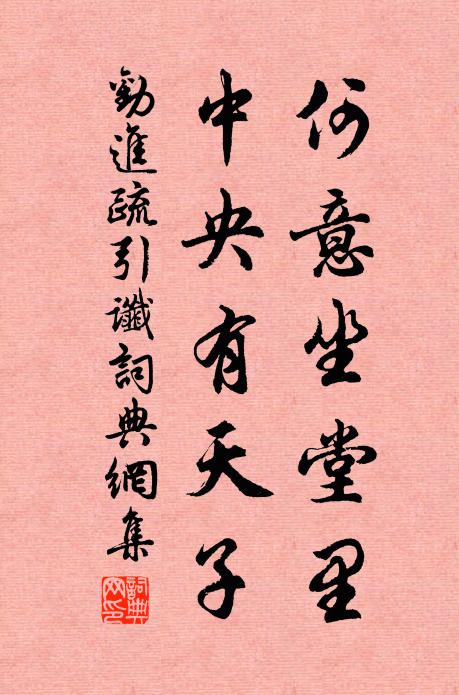 何意坐堂里
中央有天子
勸進疏引讖詞典網集
詞典網印